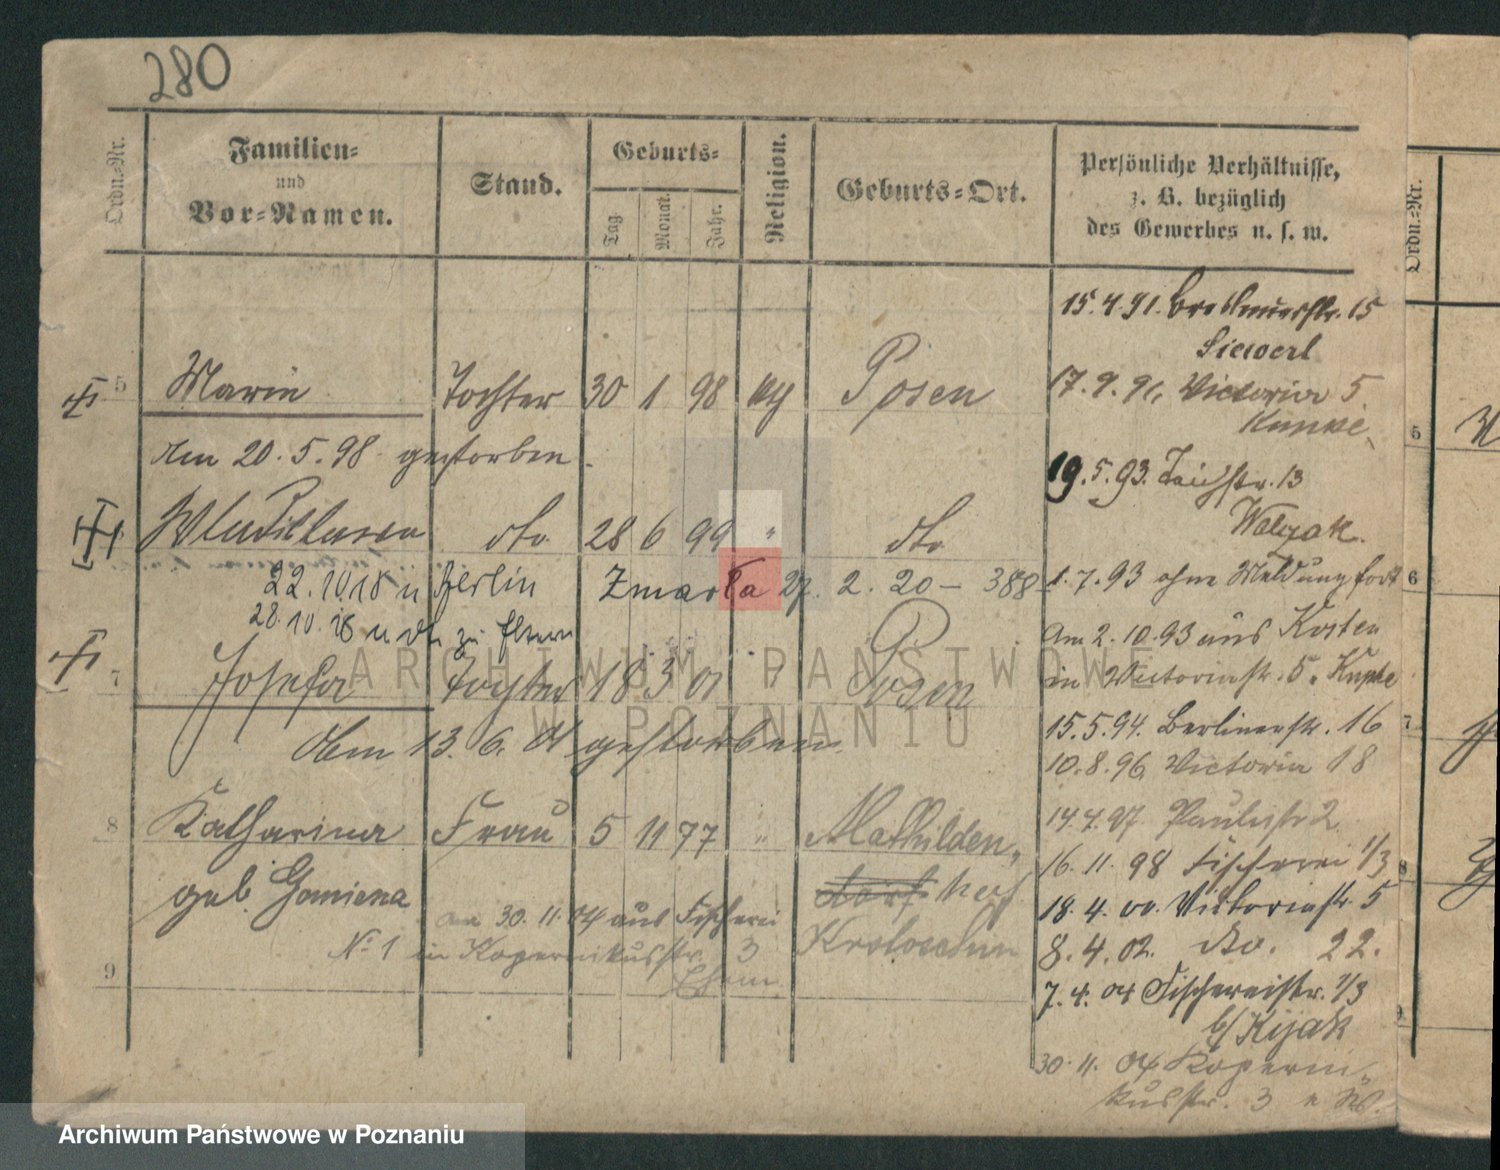 280
Ordn.-Nr.
Familien-
und
Vor-Namen.
Stand.
Geburts-
Tag.
Monat.
Jahr.
Religion.
Geburts-Ort.
Persönliche Verhältnisse,
z. B. bezüglich
des Gewerbes u. s. w.
Ordn.-Nr.
15.4.91. Breslauerstr. 15
Siewert
5 Maria Tochter 30 1 98 Posen
17.9.91. Victoria 5
Am 20.5.98 gestorben.
19.5.93. Teichstr. 13
Walczak.
Wladislawa dto. 28 6 99 " dto.
1.7.93 ohne Meldung fort
22.10.18 n Berlin Zmarła 27. 2. 20 – 388
28.10.18 zu Eltern
Am 2.10.93 aus Kosten
in Victoriastr. 5.
7 Josefa Tochter 18 3 01 " Posen
15.5.94. Berlinerstr. 16
Am 13.6.01 gestorben.
10.8.96 Victoria 18
14.4.97 Paulistr 2
8 Katharina Frau 5 11 77 " Mathilden-
16.11.98 Fischerei 1/3
geb. dorf
18.4.00. Victoriastr. 5
30.11.04 aus Fischerei
No 1 in Kopernikusstr. 3
Krotoschin
8.4.02. do. 22.
9
7.4.04 Fischereistr. 1/3
b/Kijak
30.11.04 Koperni-
kusstr. 3
5
6
7
8
9
ARCHIWUM PAŃSTWOWE
W POZNANIU
Archiwum Państwowe w Poznaniu